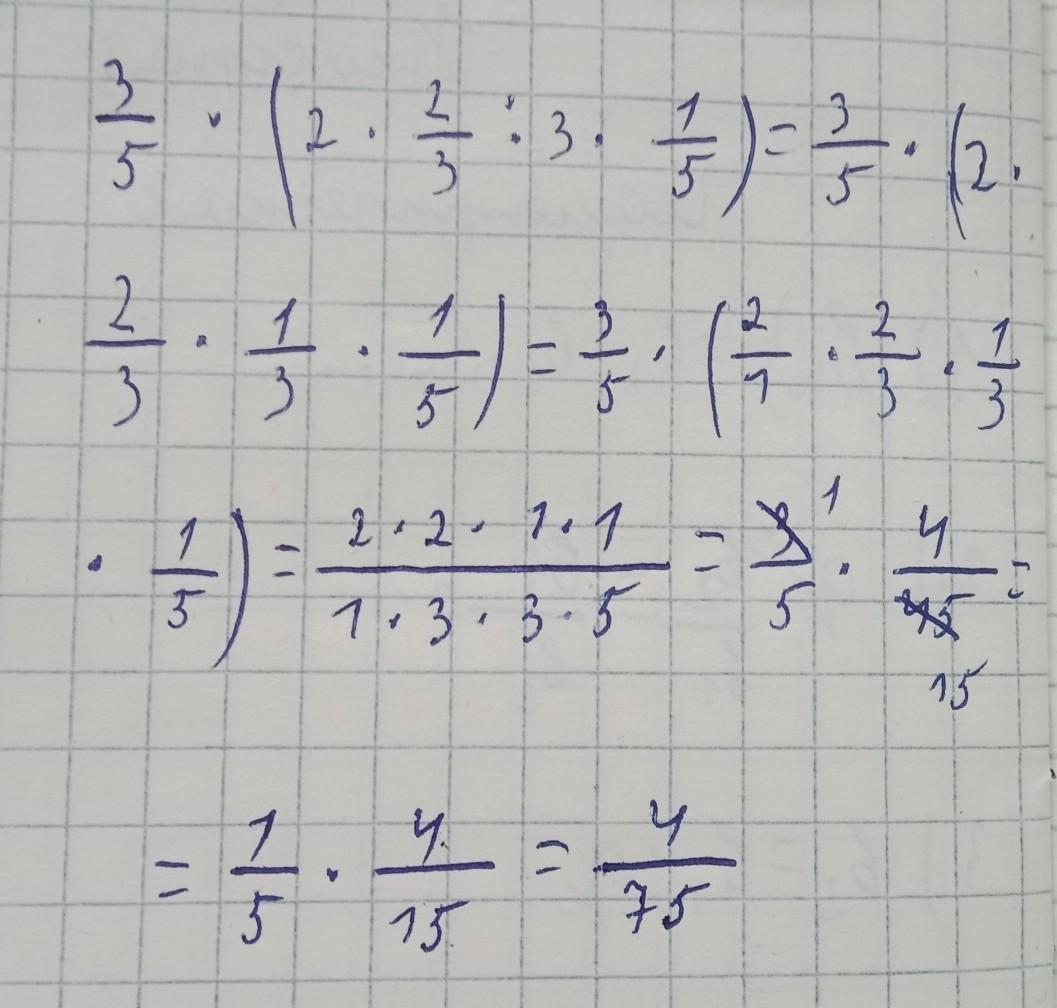 3/5 · (2 · 2/3 : 3 · 1/5) = 3/5 · (2 ·
2/3 · 1/3 · 1/5) = 3/5 · (2/1 · 2/3 · 1/3
· 1/5) = 2·2·1·1/1·3·3·5 = 3/5 1 · 4/45 15 =
= 1/5 · 4/15 = 4/75